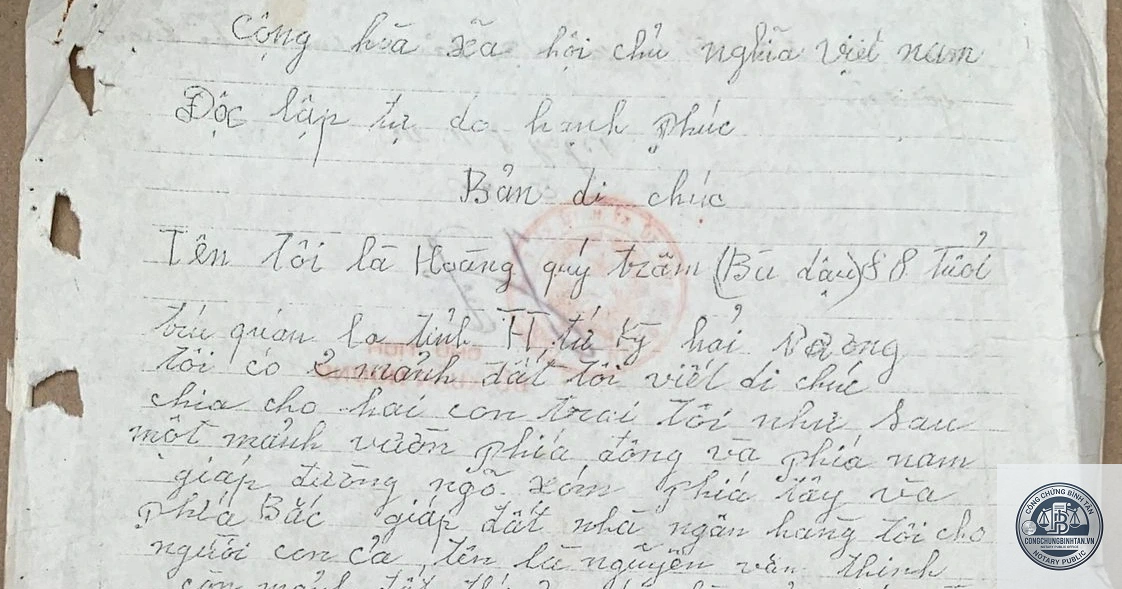 Cộng hòa xã hội chủ nghĩa việt nam
Độc lập tự do hạnh phúc
Bản di chúc
Tên tôi là Hoàng quý trâm (Bà dậu) 88 Tuổi
trú quán la tỉnh TT tứ kỳ hải Dương
tôi có 2 mảnh đất tôi viết di chúc
chia cho hai con trai tôi như sau
một mảnh vườn phía đông và phía nam
giáp đường ngõ xóm phía tây và
phía Bắc giáp đất nhà ngân hàng tôi cho
người con cả tên là nguyễn văn thinh
còn mảnh đất
CÔNG CHỨNG BÌNH TÂN
CONGCHUNGBINHTAN.VN
NOTARY PUBLIC OFFICE
NOTARY PUBLIC